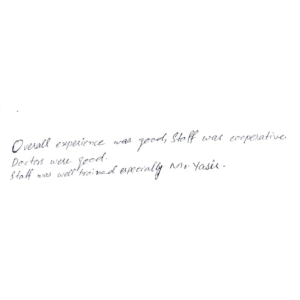 Overall experience was good, Staff was cooperative.
Doctors were good.
Staff was well trained especially Mr. Yasir.